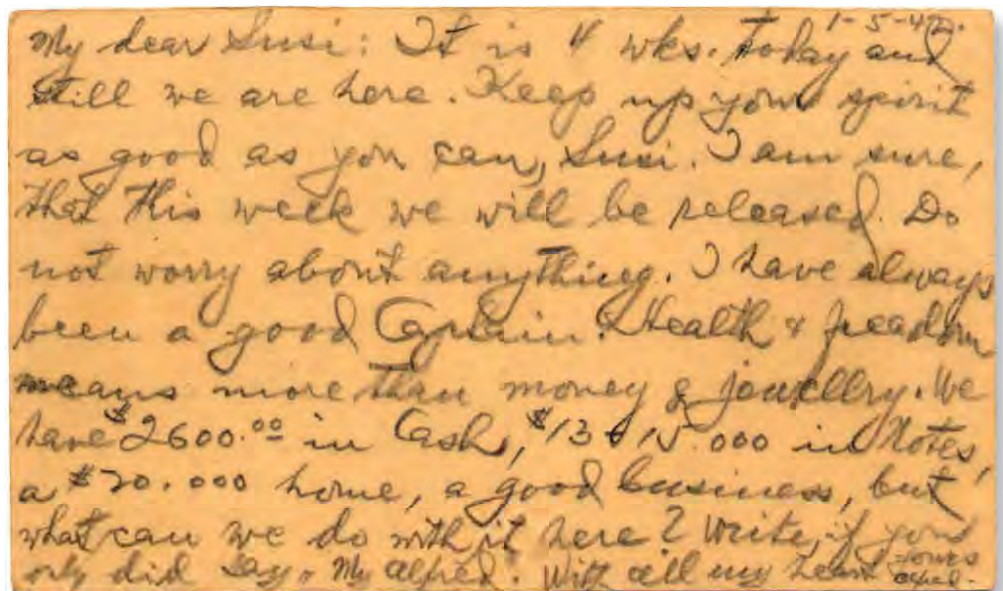 1-5-42.
My dear Susi: It is 4 wks. today and
still we are here. Keep up your spirit
as good as you can, Susi. I am sure,
that this week we will be released. Do
not worry about anything. I have always
been a good Captain. Health & freedom
means more than money & jewellry. We
have $2600.00 in Cash, $13 & 15.000 in Notes,
a $20.000 home, a good business, but
what can we do with it here? Write, if you
only did say "My Alfred." With all my heart yours
Alfred.